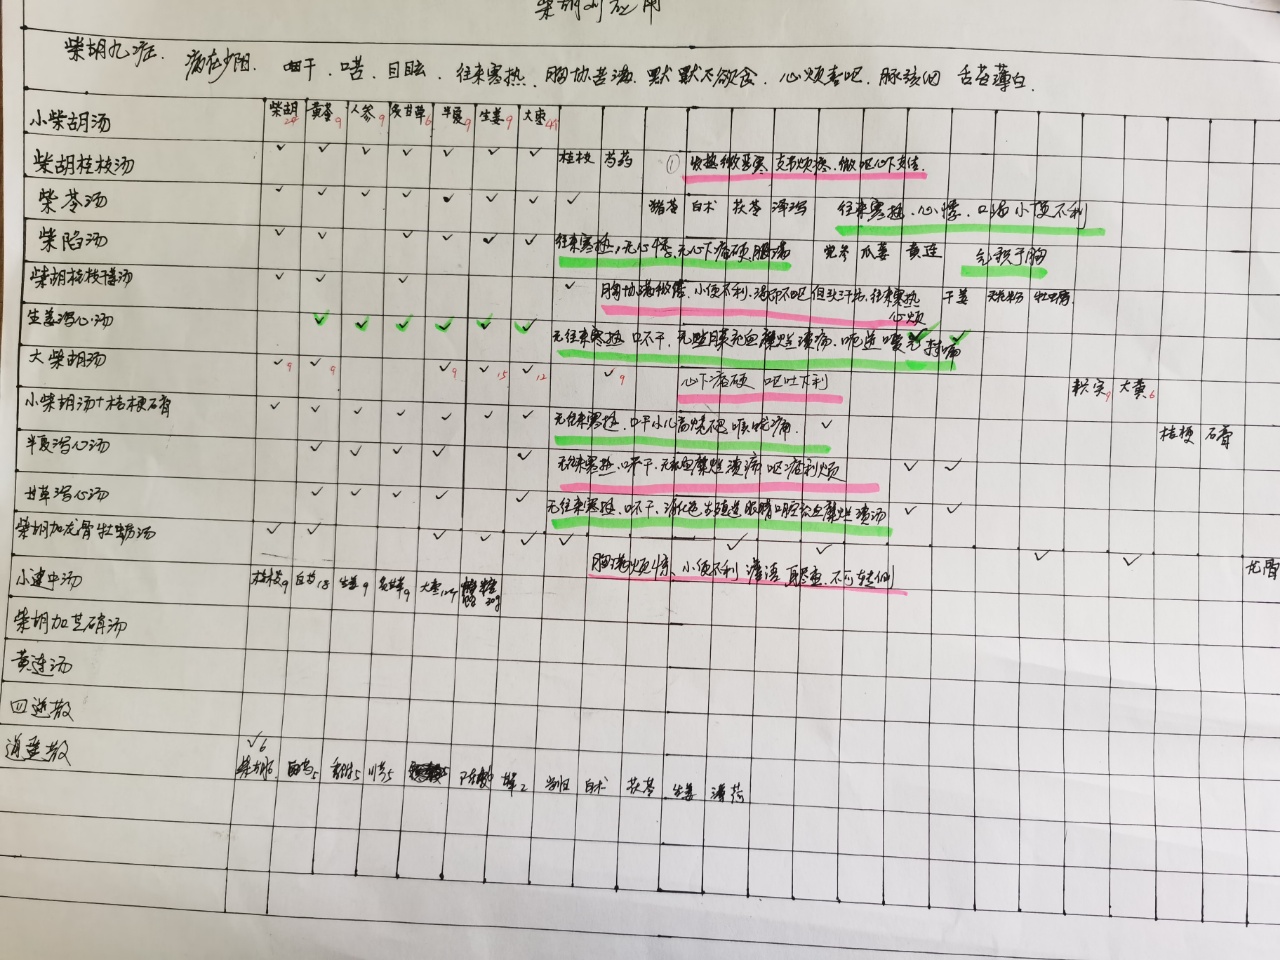 柴胡剂应用
柴胡九症. 病在少阳. 咽干. 口苦. 目眩. 往来寒热. 胸协苦满. 默默不欲食. 心烦喜呕. 脉弦细 舌苔薄白.
小柴胡汤 柴胡 黄芩9 人参9 炙甘草6 半夏9 生姜9 大枣
柴胡桂枝汤 ✓ ✓ ✓ ✓ ✓ ✓ ✓ 桂枝 芍药 ① 发热微恶寒 支节烦疼. 微呕心下支结.
柴苓汤 ✓ ✓ ✓ ✓ ✓ ✓ ✓ ✓ 猪苓 白术 茯苓 泽泻 往来寒热. 心悸. 口渴小便不利
柴陷汤 ✓ ✓ ✓ ✓ ✓ ✓ 往来寒热, 无心悸、无心下痞硬, 胸痛 瓜蒌 黄连 于胸
柴胡桂枝干姜汤 ✓ ✓ ✓ ✓ 胸协满微结、小便不利、渴而不呕 但头汗出, 往来寒热 心烦 干姜 天花粉 牡蛎
生姜泻心汤 ✓ ✓ ✓ ✓ ✓ ✓ 无往来寒热 口不干, 糜烂溃疡, 呃逆嗳气 ✓ ✓
大柴胡汤 ✓9 ✓9 ✓9 ✓15 ✓12 ✓9 心下痞硬 呕吐下利 枳实9 大黄6
小柴胡汤+桔梗石膏 ✓ ✓ ✓ ✓ ✓ ✓ ✓ 无往来寒热. 口干小儿高烧不退 咽喉疼痛. ✓ 桔梗 石膏
半夏泻心汤 ✓ ✓ ✓ ✓ ✓ 无往来寒热. 口不干. 糜烂溃疡 呕痞利烦 ✓ ✓
甘草泻心汤 ✓ ✓ ✓ ✓ ✓ 无往来寒热. 口不干、消化道生殖道眼睛口腔充血糜烂溃疡 ✓ ✓
柴胡加龙骨牡蛎汤 ✓ ✓ ✓ ✓ ✓ ✓ ✓ ✓ 胸满烦惊、小便不利 谵语 身尽重、不可转侧 ✓ ✓ 龙骨
小建中汤 桂枝9 白芍18 生姜9 炙甘草9 大枣 30g
柴胡加芒硝汤
黄连汤
四逆散
逍遥散 ✓6
柴胡 白芍5 香附5 川芎5 陈皮 甘草2 当归 白术 茯苓 生姜 薄荷